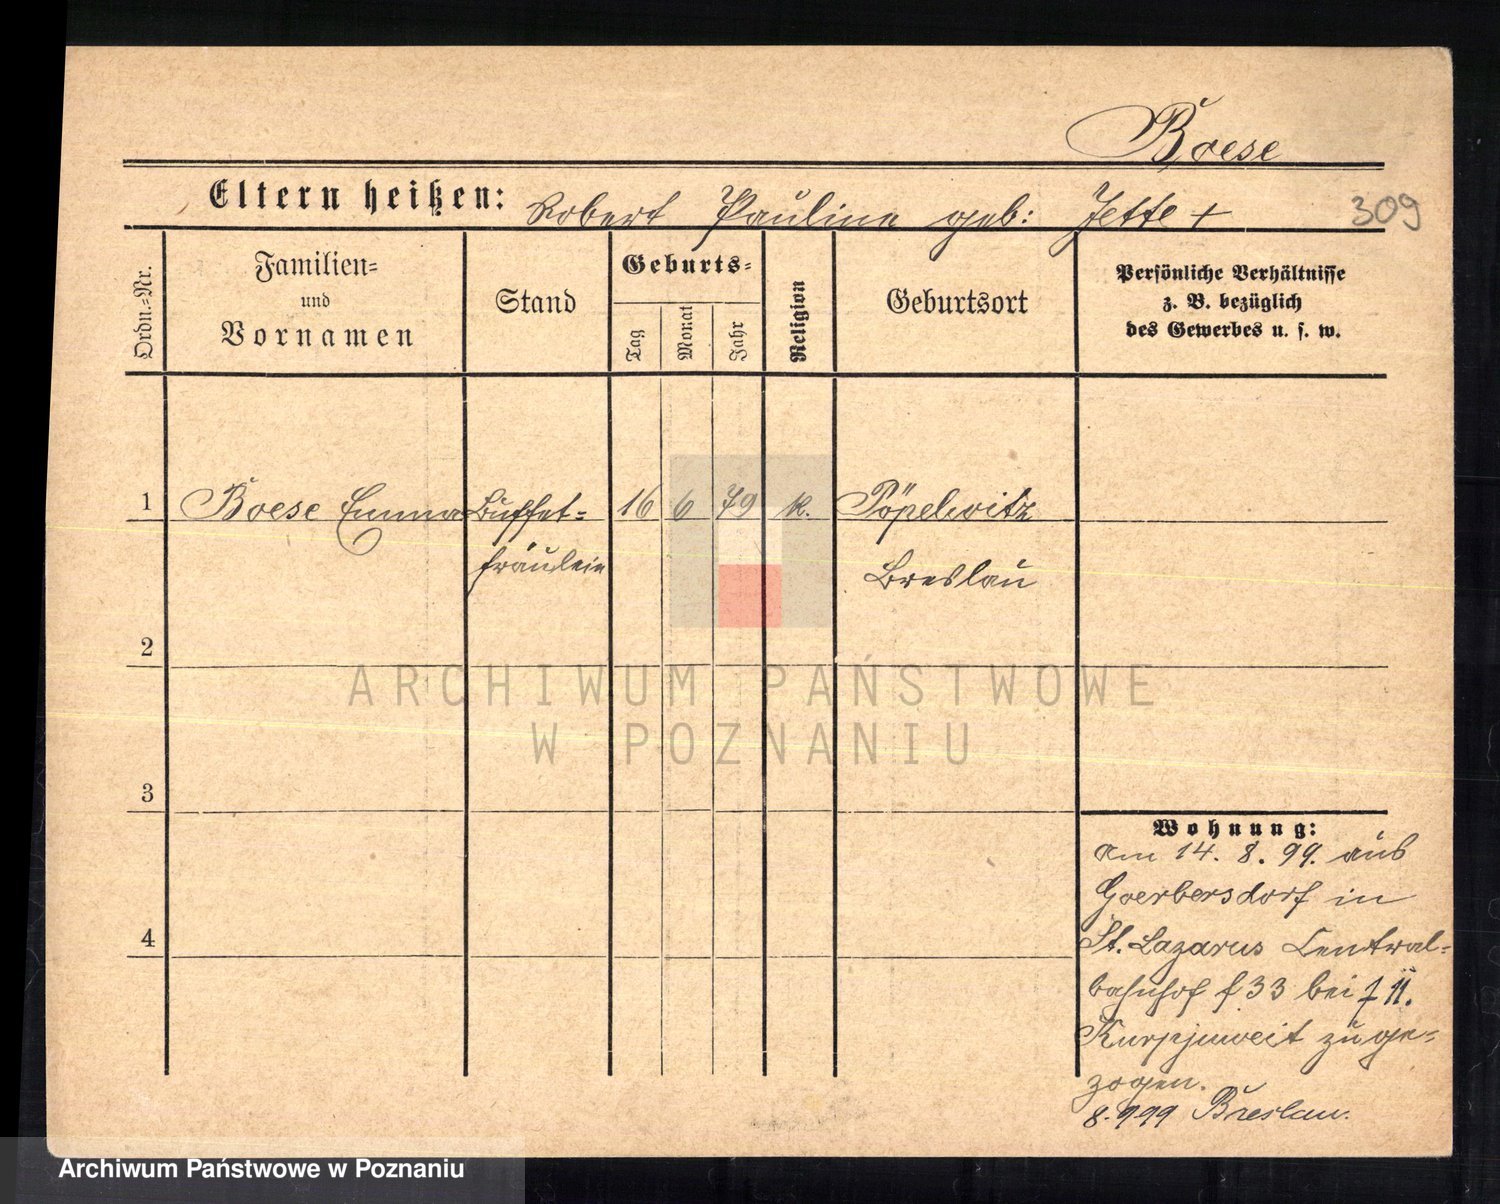 Boese
Eltern heißen: Robert Pauline geb: Jette +
309
Ordn.-Nr.
Familien-
und
Vornamen
Stand
Geburts-
Tag
Monat
Jahr
Religion
Geburtsort
Persönliche Verhältnisse
z. B. bezüglich
des Gewerbes u. s. w.
1 Boese Emma Buffet- 16 6 79 k. Pöpelwitz
fräulein Breslau
2
3
4
Wohnung:
Am 14. 8. 99. aus
Goerbersdorf in
St. Lazarus Central-
bahnhof f 33 bei
Kurpjuweit zuge-
zogen.
8.9 99 Breslau.
ARCHIWUM PAŃSTWOWE
W POZNANIU
Archiwum Państwowe w Poznaniu